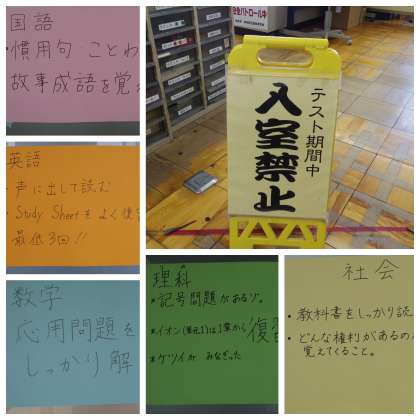 国語
・慣用句 ことわ
故事成語を覚え
英語
・声に出して読む
・Study Sheetをよく復習
最低3回!!
数学
応用問題を
しっかり解
テスト期間中
入室禁止
理科
*記号問題があるゾ。
*イオン(単元1)は1章から復習
*ケツイが みなぎった
社会
・教科書をしっかり読
・どんな権利があるのか
覚えてくること。